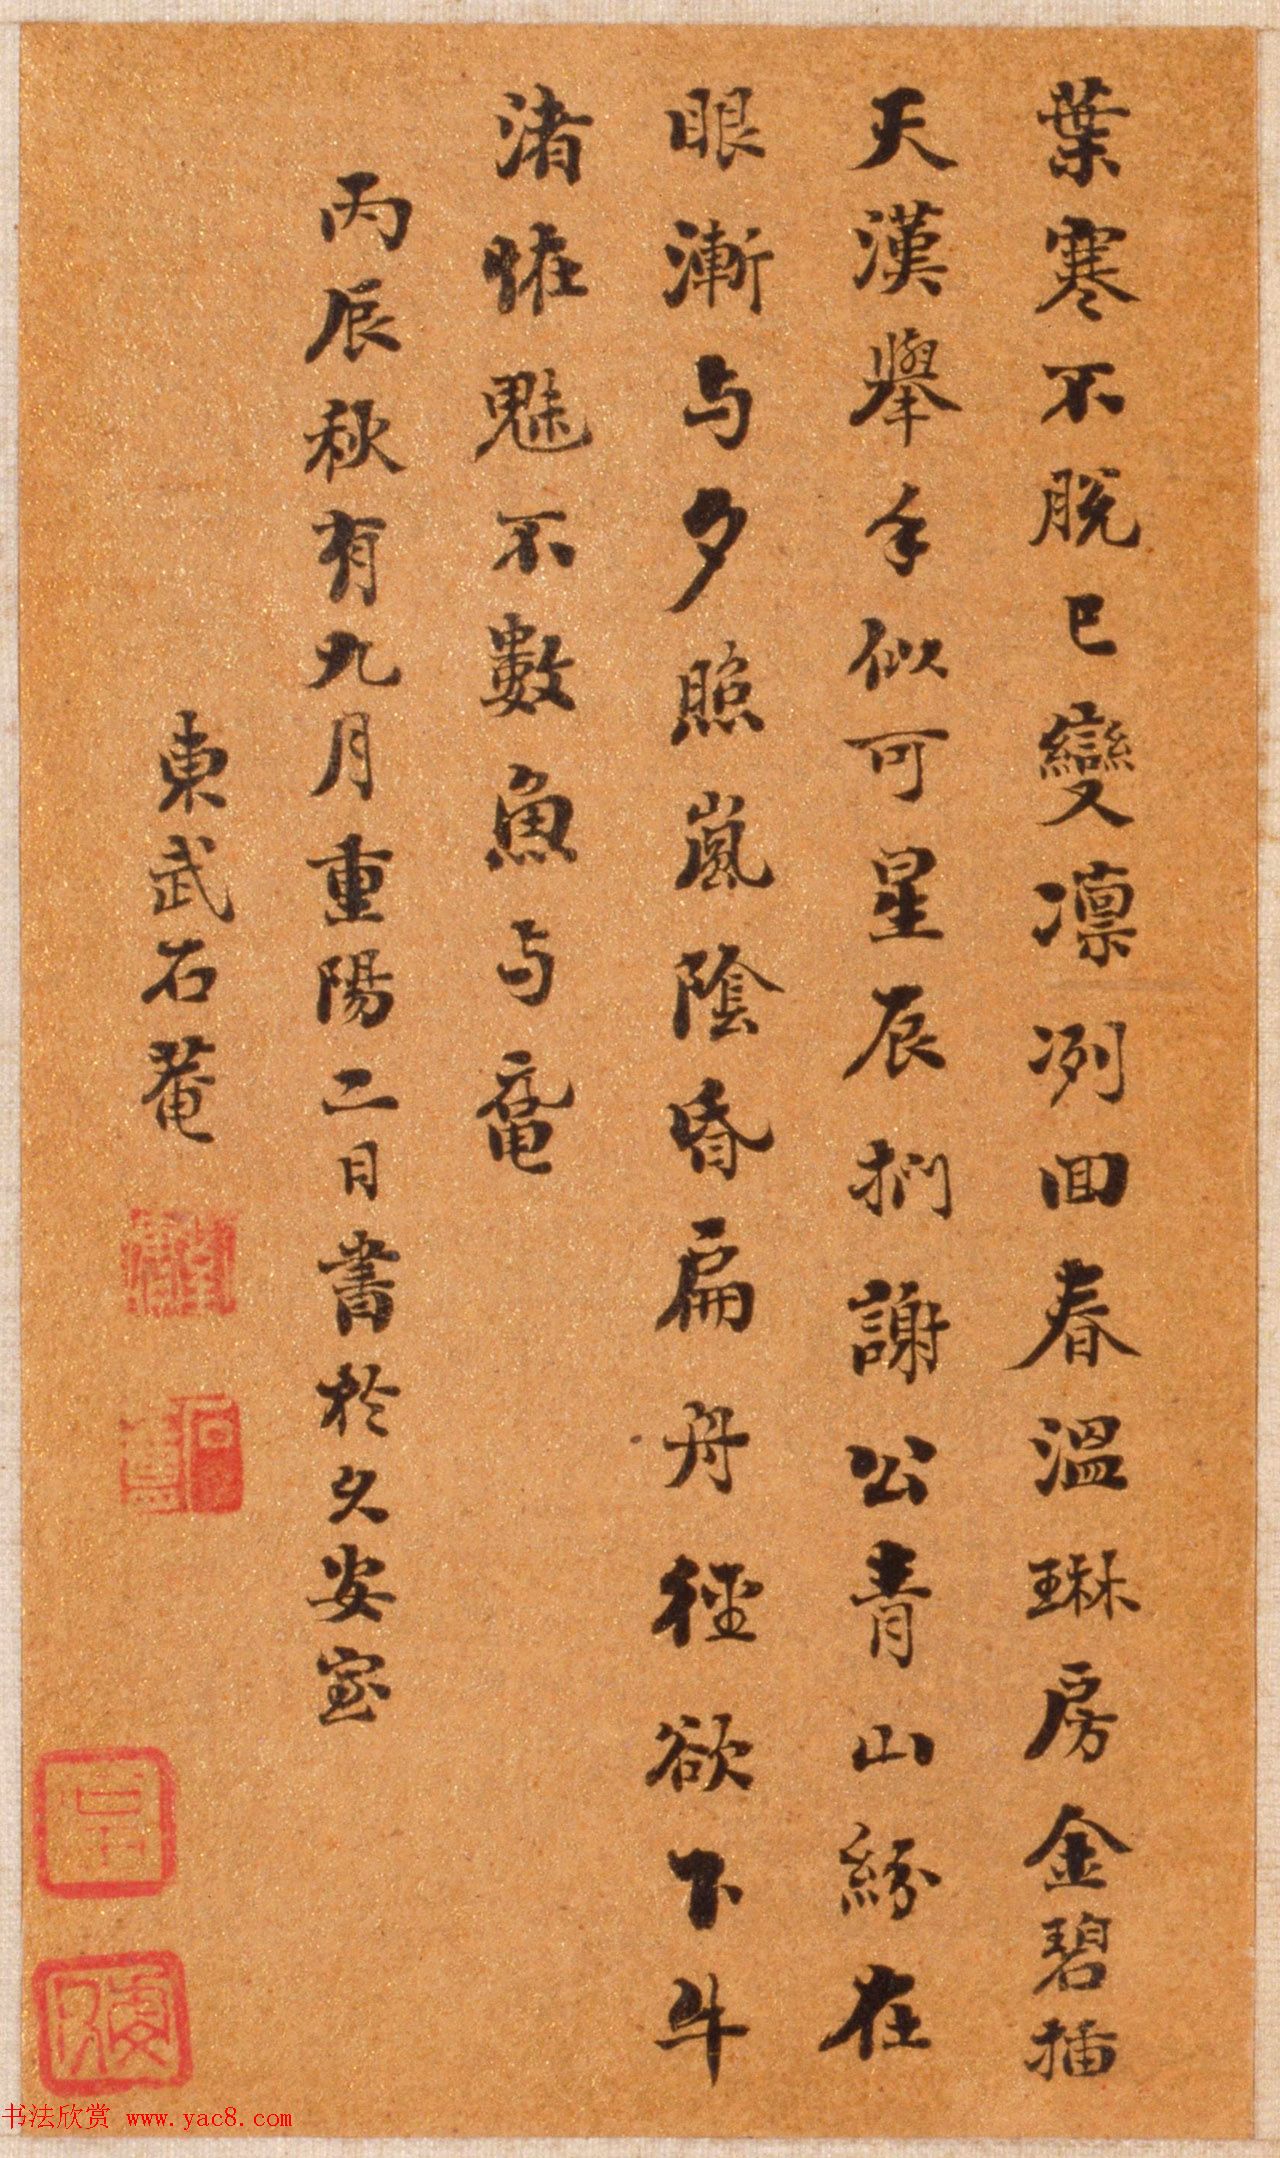 葉寒不脫已變凛冽回春溫琳房金碧插
天漢舉手似可星辰捫謝公青山紛在
眼漸与夕照嵐陰昏扁舟徑欲下牛
渚恠魁不數魚与黿
丙辰秋有九月重陽二日書於久安室
東武石菴
书法欣赏 www.yac8.com